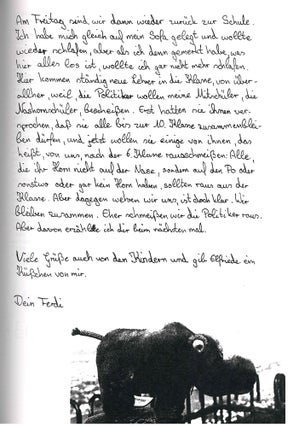 Am Freitag sind wir dann wieder zurück zur Schule.
Ich habe mich gleich auf mein Sofa gelegt und wollte
wieder schlafen, aber als ich dann gemerkt habe, was
hier alles los ist, wollte ich gar nicht mehr schlafen.
Hier kommen ständig neue Lehrer in die Klasse, von über-
allher, weil die Politiker wollen meine Mitschüler, die
Nashornschüler, bescheißen. Erst hatten sie ihnen ver-
sprochen, daß sie alle bis zur 10. Klasse zusammenblei-
ben dürfen, und jetzt wollen sie einige von ihnen, das
heißt, von uns, nach der 6. Klasse rausschmeißen: Alle,
die ihr Horn nicht auf der Nase, sondern auf den Po oder
sonstwo oder gar kein Horn haben, sollten raus aus der
Klasse. Aber dagegen wehren wir uns, ist doch klar. Wir
bleiben zusammen. Eher schmeißen wir die Politiker raus.
Aber davon erzähle ich dir beim nächsten mal.
Viele Grüße auch von den Kindern und gib Elfriede ein
Küßchen von mir.
Dein Ferdi